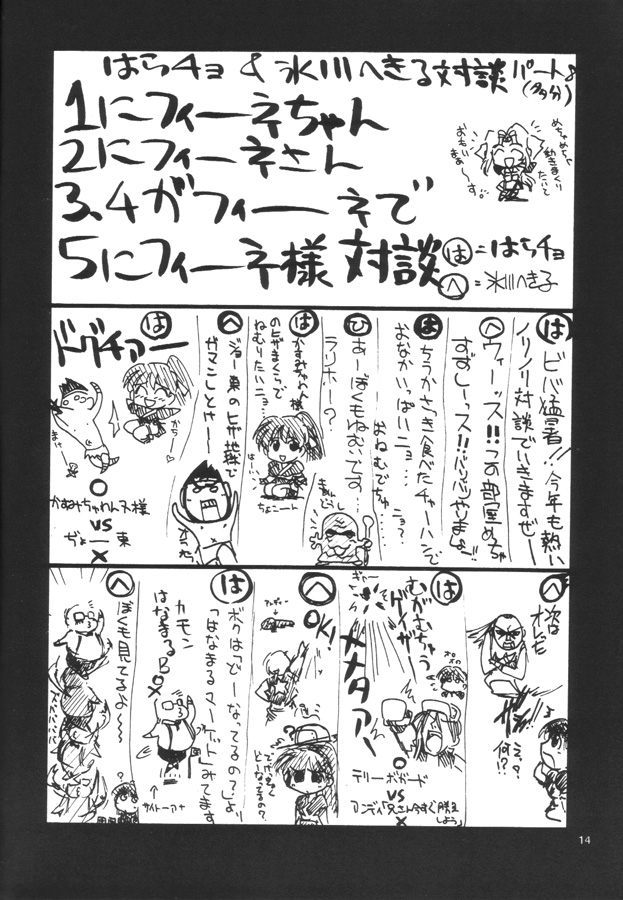 はらチョ & 氷川へきる対談パート8
(多分)
1にフィーネちゃん
2にフィーネさん
3、4がフィーネで
5にフィーネ様 対談
めちゃめちゃ
おもい
まぁ〜す。
は=はらチョ
へ=氷川へき子
は ビバ猛暑!!今年も熱い
ノリノリ対談でいきますぜー
へ ウィーッス!!この部屋めちゃ
すずしーッス!!バリバリやりまひょ。
は ちうかさっき食べたチャーハンで
おなかいっぱいニョ…
おねむでちゅ…
ニョ?
ひ あーぼくもねむいです…
ラリホー?
は かすみちゃわん様
のヒザまくらで
ねむりたいニョ…
はーい…
ちょこーニート
へ ジョー東のヒザ地獄で
ガマンしとけやー
は ドグチアー
かち♡
まけ
○
かすみちゃわんス様
VS
ぢょー東
×
へ 次は
オレだ
えっ?
何!?
は むがむちゅう
ゲイザー
ギャー
ポポポ
○
テリーボガード
VS
アンディ「兄さん今すぐ脱出しよう」
×
メタァー
へ OK!
アンディー
どーなってるの?
は ボクは「どーなってるの?」より
「はなまるマーケット」みてます
カモン
はなまるB
○
×
↑
サイトーアナ
へ ぼくも見てるよ〜〜
14